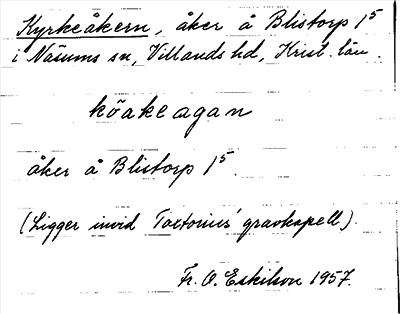 Kyrkeåkern, åker å Blistorp 1⁵
i Näsums sn, Villands hd, Krist. län.
köakeagan
åker å Blistorp 1⁵.
(Ligger invid Taxtorius' gravkapell).
Fr. O. Eskilson 1957.